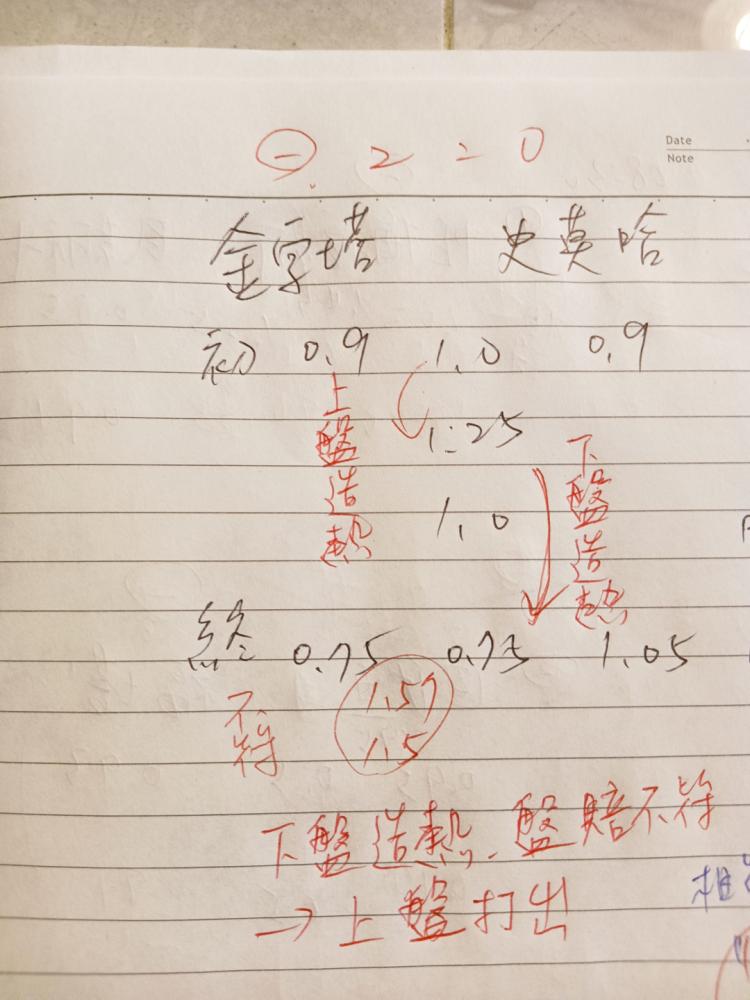 ㊀ 2 : 0
Date
Note
金字塔 史莫哈
初 0.9 1.0 0.9
1.25
1.0
上盤造熱
下盤造熱
終 0.75 0.75 1.05
不符
1.57
1.5
下盤造熱、盤賠不符
→上盤打出